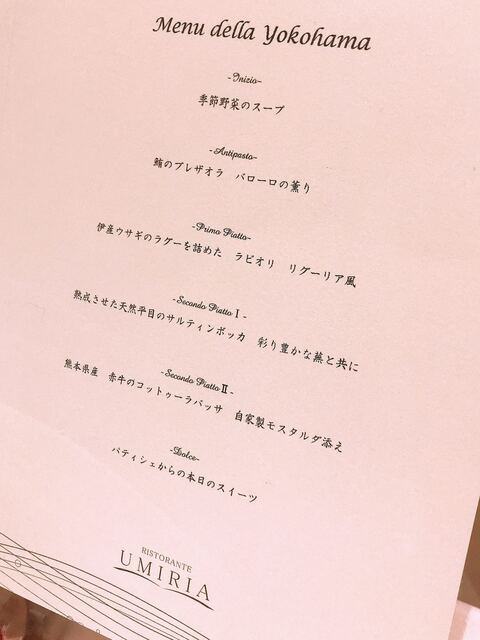 Menu della Yokohama
-Inizio-
季節野菜のスープ
-Antipasto-
鮪のブレザオラ バローロの薫り
-Primo Piatto-
伊産ウサギのラグーを詰めた ラビオリ リグーリア風
-Secondo PiattoⅠ-
熟成させた天然平目のサルティンボッカ 彩り豊かな蕪と共に
-Secondo PiattoⅡ-
熊本県産 赤牛のコットゥーラバッサ 自家製モスタルダ添え
-Dolce-
パティシェからの本日のスイーツ
RISTORANTE
UMIRIA